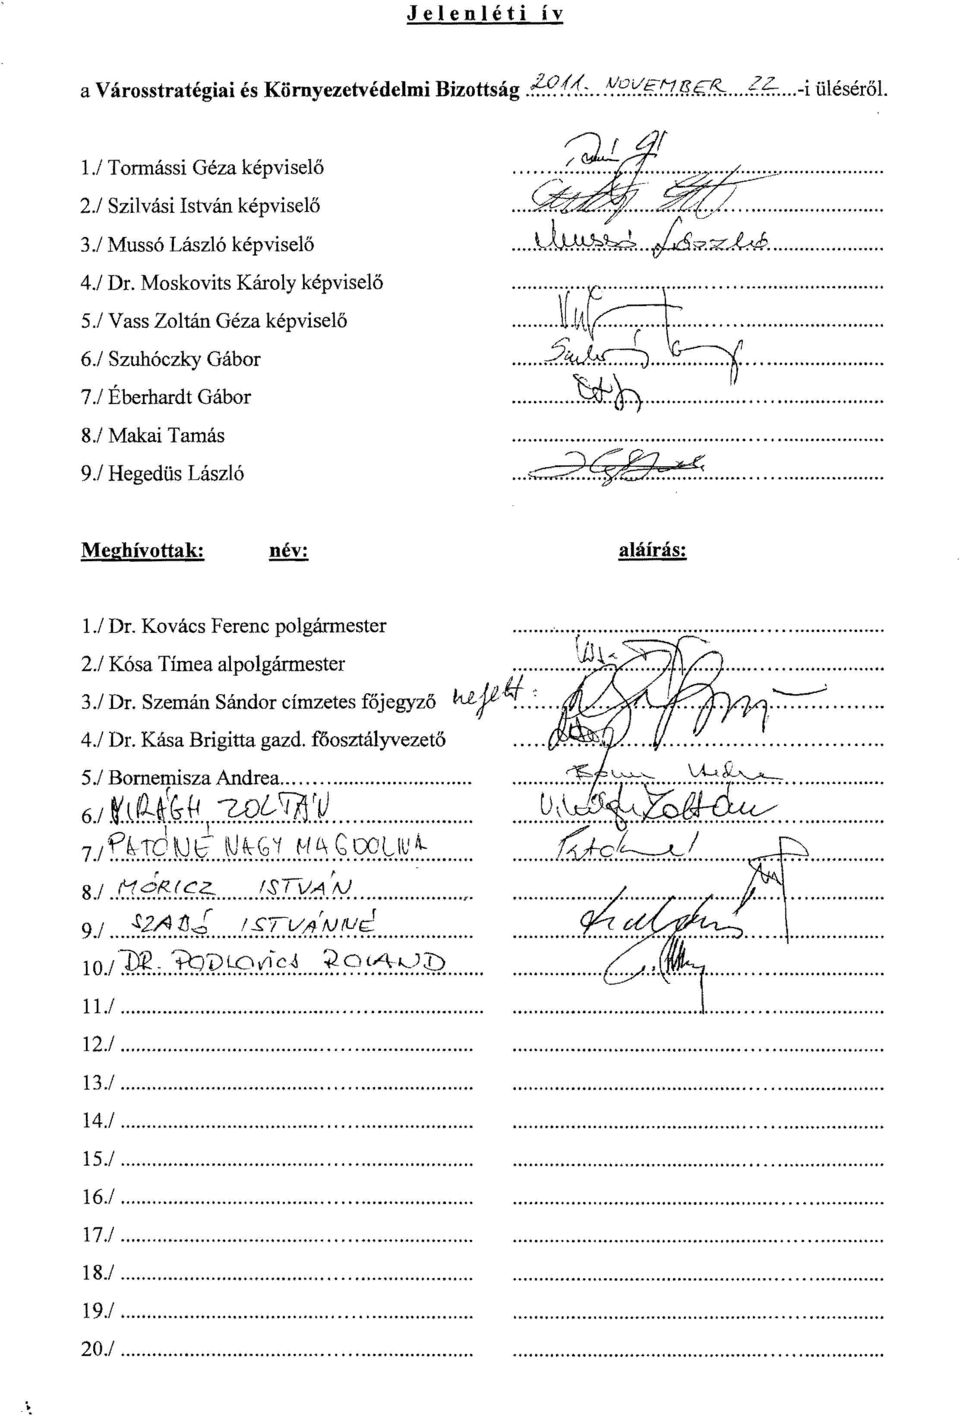 Jelenléti ív
a Városstratégiai és Környezetvédelmi Bizottság 2011. NOVEMBER 22-i üléséről.
1./ Tormássi Géza képviselő
2./ Szilvási István képviselő
3./ Mussó László képviselő Mussó László
4./ Dr. Moskovits Károly képviselő
5./ Vass Zoltán Géza képviselő
6./ Szuhóczky Gábor
7./ Éberhardt Gábor
8./ Makai Tamás
9./ Hegedüs László
Meghívottak: név: aláírás:
1./ Dr. Kovács Ferenc polgármester
2./ Kósa Tímea alpolgármester
3./ Dr. Szemán Sándor címzetes főjegyző helyett:
4./ Dr. Kása Brigitta gazd. főosztályvezető
5./ Bornemisza Andrea
6./ VIRÁGH ZOLTÁN Virágh Zoltán
7./ PATÓNÉ NAGY MAGDOLNA Patóné
8./ MÓRICZ ISTVÁN
9./ SZABÓ ISTVÁNNÉ
10./ DR. PODLOVICS ROLAND
11./
12./
13./
14./
15./
16./
17./
18./
19./
20./